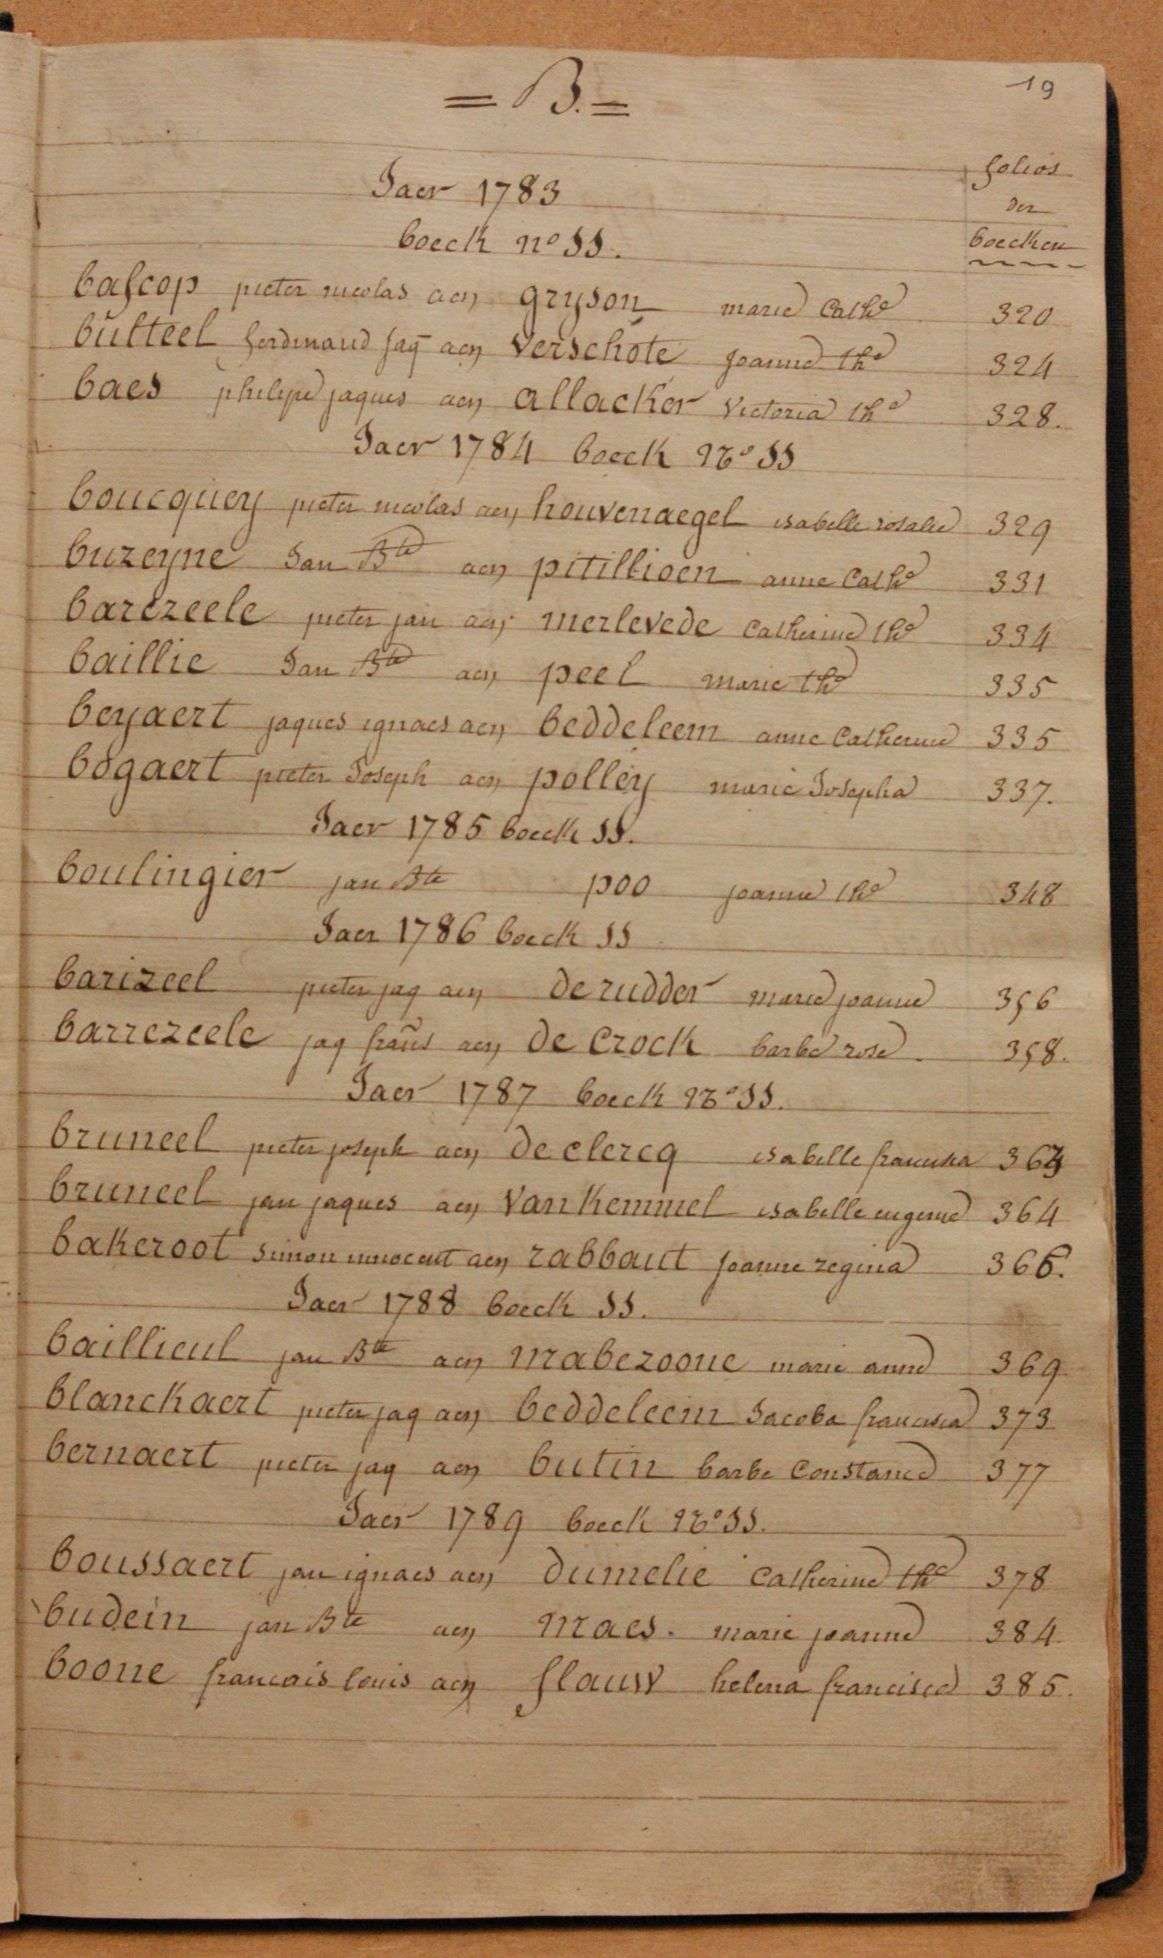 19
= B. =
folios
Jaer 1783
der
boeck no SS.
boecken
bascop pieter nicolas aen gryson marie Cathe 320
bulteel ferdinand Jaq aen verschote joanne the 324
baes philipe jaques aen allacker victoria the 328.
Jaer 1784 boeck No SS
boucquey pieter nicolas aen houvenaegel isabelle rosalie 329
buzeyne Jan Bte aen pitillioen anne Cathe 331
barezeele pieter jan aen merlevede catherine the 334
baillie Jan Bte aen peel marie the 335
beyaert jaques ignaes aen beddeleem anne Catherine 335
bogaert pieter Joseph aen polley marie Josepha 337.
Jaer 1785 boeck SS.
boulingier jan Bte poo joanne the 348
Jaer 1786 boeck SS
barizeel pieter jaq aen de rudder marie joanne 356
barrezeele jaq frans aen de Crock barbe rose 358.
Jaer 1787 boeck No SS.
bruneel pieter joseph aen de clercq isabelle francisca 364
bruneel jan jaques aen van Kemmel isabelle eugenie 364
bakeroot simon innocent aen rabbaut joanne regina 366.
Jaer 1788 boeck SS.
baillieul jan Bte aen mabezoone marie anne 369
blanckaert pieter jaq aen beddeleem Jacoba francisca 373
bernaert pieter jaq aen butin barbe Constance 377
Jaer 1789 boeck No SS.
boussaert jan ignaes aen dumelie Catherine the 378
budein jan Bte aen maes. marie joanne 384
boone francois louis aen flauw helena francisca 385.